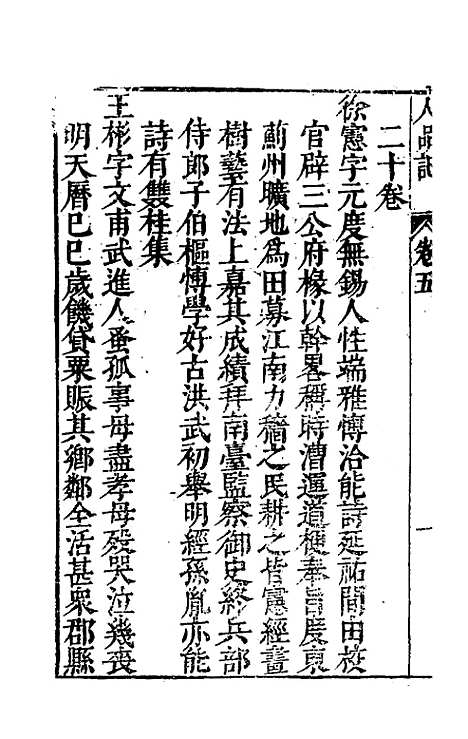 人品記 卷五 一
二十卷
徐憲字元度無錫人性端雅博洽能詩延祐間田校
官辟三公府椽以幹畧稱時漕運道梗奉旨度東
薊州曠地為田募江南力穡之民耕之皆憲經畫
樹藝有法上嘉其成績拜南臺監察御史終兵部
侍郎子伯樞博學好古洪武初舉明經孫胤亦能
詩有雙桂集
王彬字文甫武進人蚤孤事母盡孝母殁哭泣幾喪
明天曆己巳歲饑貸粟賑其鄉鄰全活甚衆郡縣